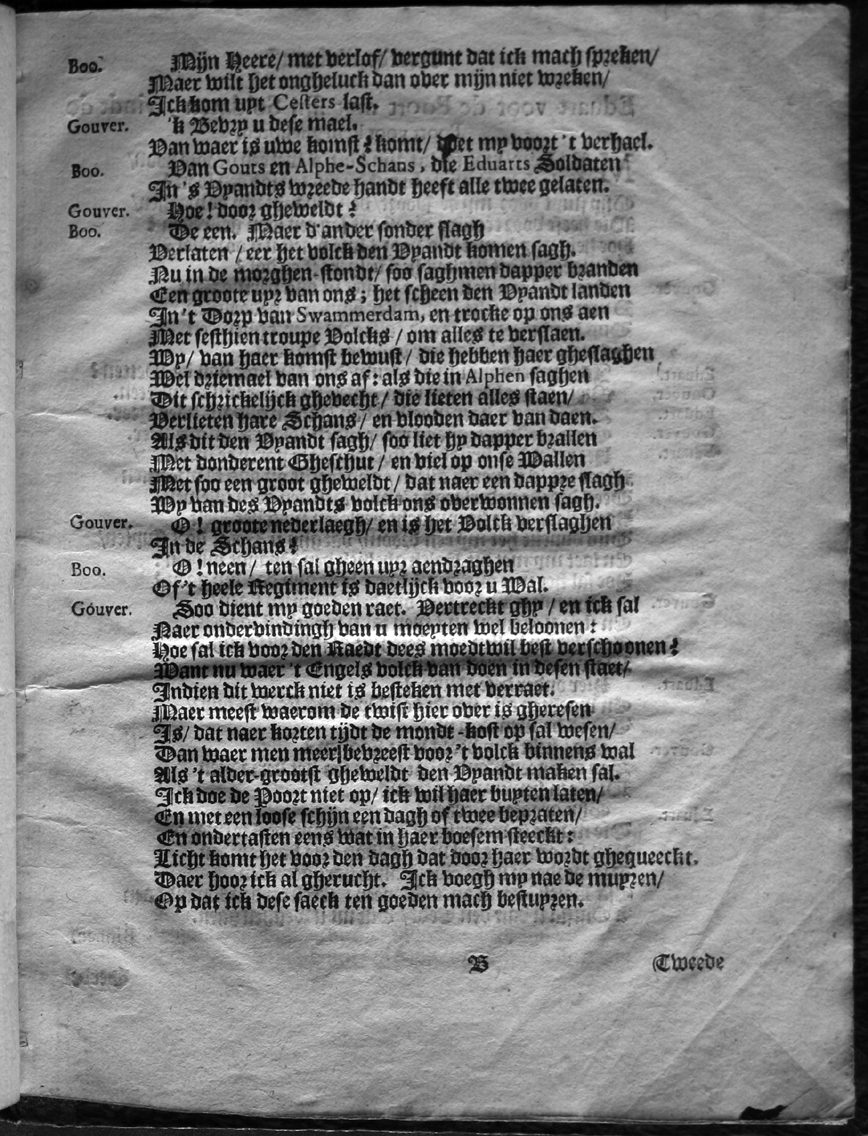 Boo. Mijn Heere/ met verlof/ vergunt dat ick mach spreken/
Maer wilt het ongheluck dan over mijn niet wreken/
Ick kom uyt Cesters last.
Gouver. 'k Bevry u dese mael.
Van waer is uwe komst? komt/ doet my voort 't verhael.
Boo. Van Gouts en Alphe-Schans, die Eduarts Soldaten
In 's Vyandts wreede handt heeft alle twee gelaten.
Gouver. Hoe! door gheweldt?
Boo. De een. Maer d'ander sonder slagh
Verlaten / eer het volck den Vyandt komen sagh.
Nu in de morghen-stondt/ soo saghmen dapper branden
Een groote uyr van ons; het scheen den Vyandt landen
In 't Dorp van Swammerdam, en trocke op ons aen
Met sesthien troupe Volcks / om alles te verslaen.
Wy/ van haer komst bewust/ die hebben haer gheslaghen
Wel driemael van ons af: als die in Alphen saghen
Dit schrickelijck ghevecht/ die lieten alles staen/
Verlieten hare Schans/ en vlooden daer van daen.
Als dit den Vyandt sagh/ soo liet hy dapper brallen
Met donderent Gheschut/ en viel op onse Wallen
Met soo een groot gheweldt/ dat naer een dappre slagh
Wy van des Vyandts volck ons overwonnen sagh.
Gouver. O! groote nederlaegh/ en is het Volck verslaghen
In de Schans?
Boo. O! neen/ ten sal gheen uyr aendraghen
Of 't heele Regiment is daetlijck voor u Wal.
Gouver. Soo dient my goeden raet. Vertreckt ghy/ en ick sal
Naer ondervindingh van u moeyten wel beloonen:
Hoe sal ick voor den Raedt dees moedtwil best verschoonen?
Want nu waer 't Engels volck van doen in desen staet/
Indien dit werck niet is besteken met verraet.
Maer meest waerom de twist hier over is gheresen
Is/ dat naer korten tijdt de mondt-kost op sal wesen/
Dan waer men meer bevreest voor 't volck binnens wal
Als 't alder-grootst gheweldt den Vyandt maken sal.
Ick doe de Poort niet op/ ick wil haer buyten laten/
En met een loose schijn een dagh of twee bepraten/
En ondertasten eens wat in haer boesem steeckt:
Licht komt het voor den dagh dat door haer wordt ghequeeckt.
Daer hoor ick al gherucht. Ick voegh my nae de muyren/
Op dat ick dese saeck ten goeden mach bestuyren.
B Tweede